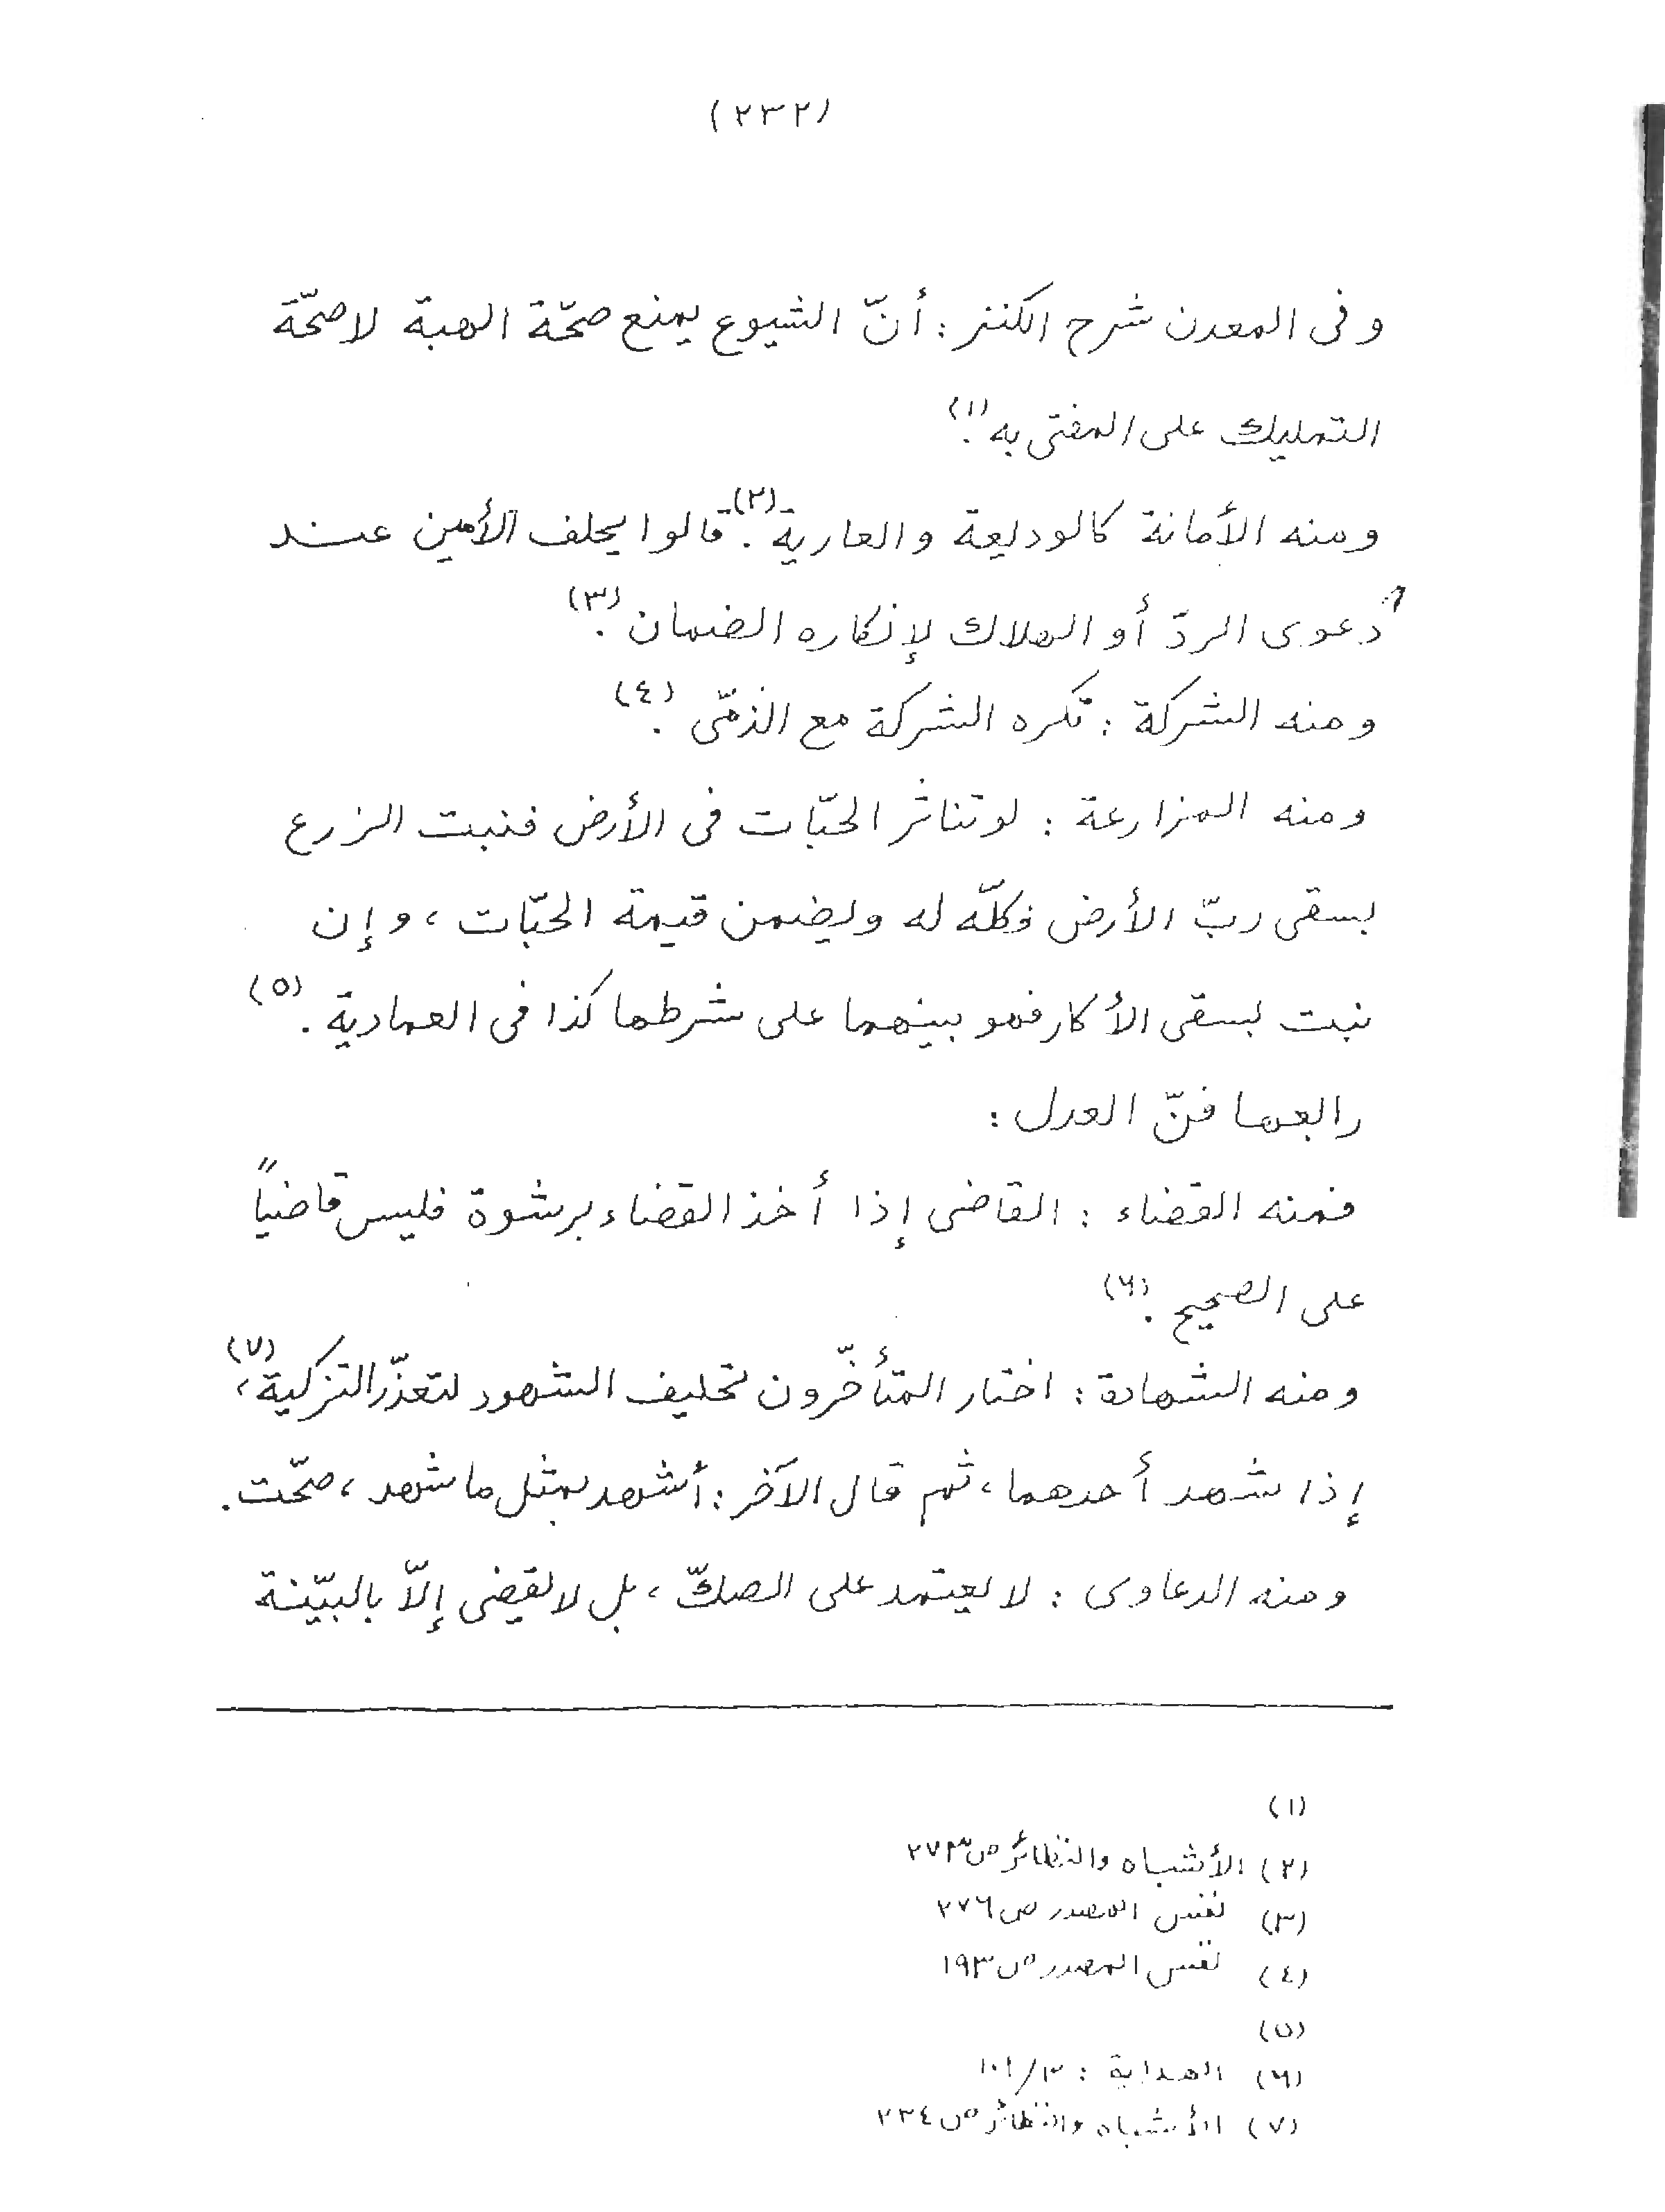 (٢٣٢)
وفى المعدن شرح الكنز : أنّ الشيوع يمنع صحّة الهبة لا صحّة
التمليك على المفتى به . (١)
ومنه الأمانة كالوديعة والعارية . (٢) قالوا يحلف الأمين عند
دعوى الردّ أو الهلاك لإنكاره الضمان . (٣)
ومنه الشركة : تكره الشركة مع الذمّى . (٤)
ومنه المزارعة : لو تناثر الحبّات فى الأرض فنبت الزرع
بسقى ربّ الأرض فكلّه له ويضمن قيمة الحبّات ، وإن
نبت بسقى الأكار فهو بينهما على شرطها كذا فى العمادية . (٥)
رابعها فنّ العدل :
فمنه القضاء : القاضى إذا أخذ القضاء برشوة فليس قاضياً
على الصحيح . (٦)
ومنه الشهادة : اختار المتأخّرون تحليف الشهود لتعذّر التزكية (٧) ،
إذا شهد أحدهما ، ثم قال الآخر : أشهد بمثل ما شهد ، صحّت .
ومنه الدعاوى : لا يعتمد على الصكّ ، بل لا يقضى إلاّ بالبيّنة
(١)
(٢) الأشباه والنظائر ص ٢٧٣
(٣) نفس المصدر ص ٢٧٦
(٤) نفس المصدر ص ١٩٣
(٥)
(٦) الهداية : ٣/١٠١
(٧) الأشباه والنظائر ص ٢٣٤